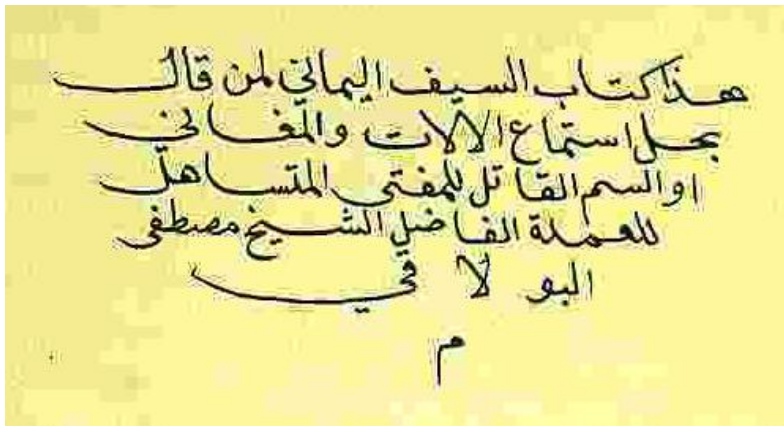 هذا كتاب السيف اليماني لمن قال
بحل استماع الآلات والمغاني
او السم القاتل للمفتى المتساهل
للعمدة الفاضل الشيخ مصطفى
البو لا في
م